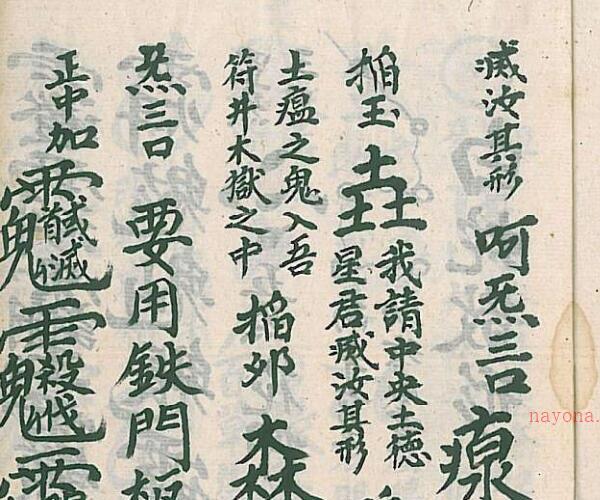 滅汝其形 呵炁三口
掐玉垚
我請中央土德
星君滅汝其形
土瘟之鬼入吾
符井木獄之中
掐夘森
炁三口 要用鉄門
正中加
馘滅
殺伐
nayona.